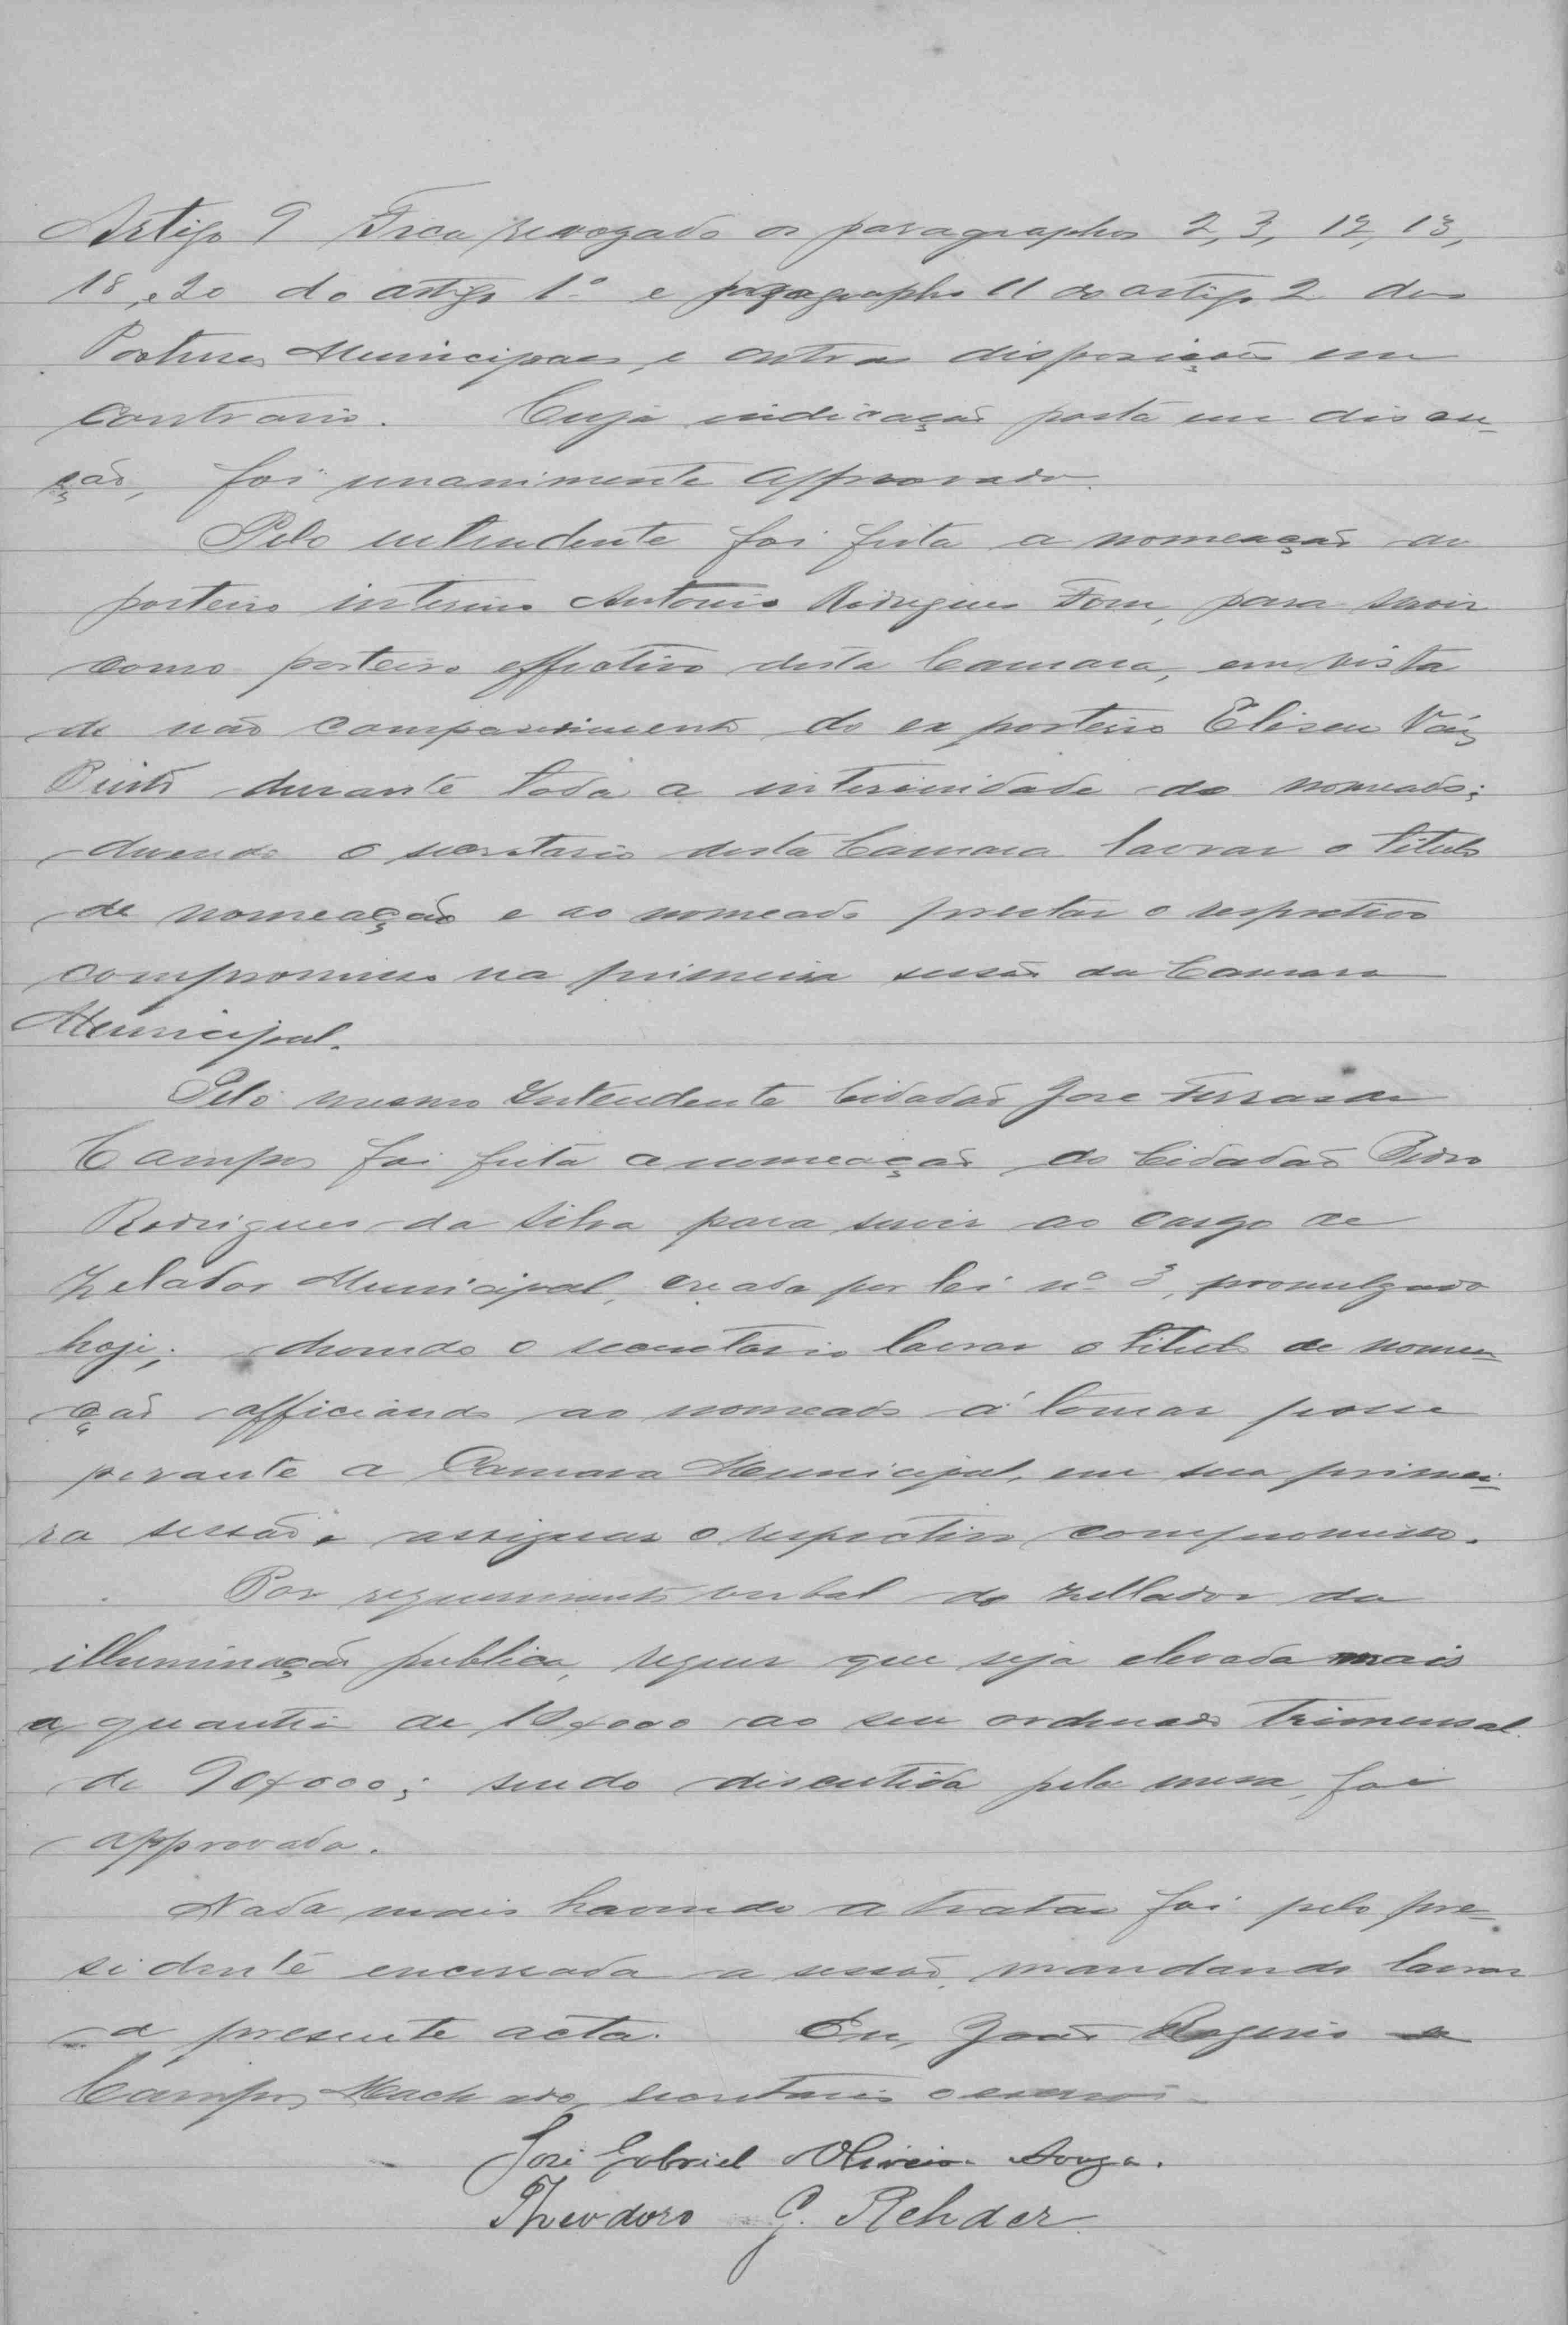 Artigo 9 Fica revogado os paragraphos 2, 3, 12, 13,
18, e 20 do artigo 1º e paragrapho 11 do artigo 2 das
Posturas Municipaes, e outras disposições em
contrario. Cuja indicação posta em discu-
ção, foi unanimente approvado.
Pelo intendente foi feita a nomeação do
porteiro interino Antonio Rodrigues, para servir
como porteiro effectivo desta Camara, em vista
de não comparecimento do ex porteiro Eliseu Váz
Pinto durante toda a interinidade do nomeado;
devendo o secretario desta Camara lavrar o titulo
de nomeação e ao nomeado prestar o respectivo
compromisso na primeira sessão da Camara
Municipal.
Pelo mesmo Intendente Cidadão Jose Ferraz de
Campos foi feita a nomeação do Cidadão Pedro
Rodrigues da Silva para servir ao cargo de
Zelador Municipal, creado por lei nº 3, promulgado
hoje; devendo o secretario lavrar o titulo de nomea-
ção officiando ao nomeado á tomar posse
perante a Camara Municipal, em sua primei-
ra sessão e assignar o respectivo compromisso.
Por requerimento verbal do zellador da
illuminação publica, requer que seja elevada mais
a quantia de 10$000 ao seu ordenado trimensal
de 90$000; sendo discutida pela mesa, foi
approvada.
Nada mais havendo a tratar foi pelo pre-
sidente encerrada a sessão, mandando lavrar
a presente acta. Eu, João Rogerio de
Campos Machado, secretario o escrevi
José Gabriel Oliveira Souza.
Theodoro G. Rehder